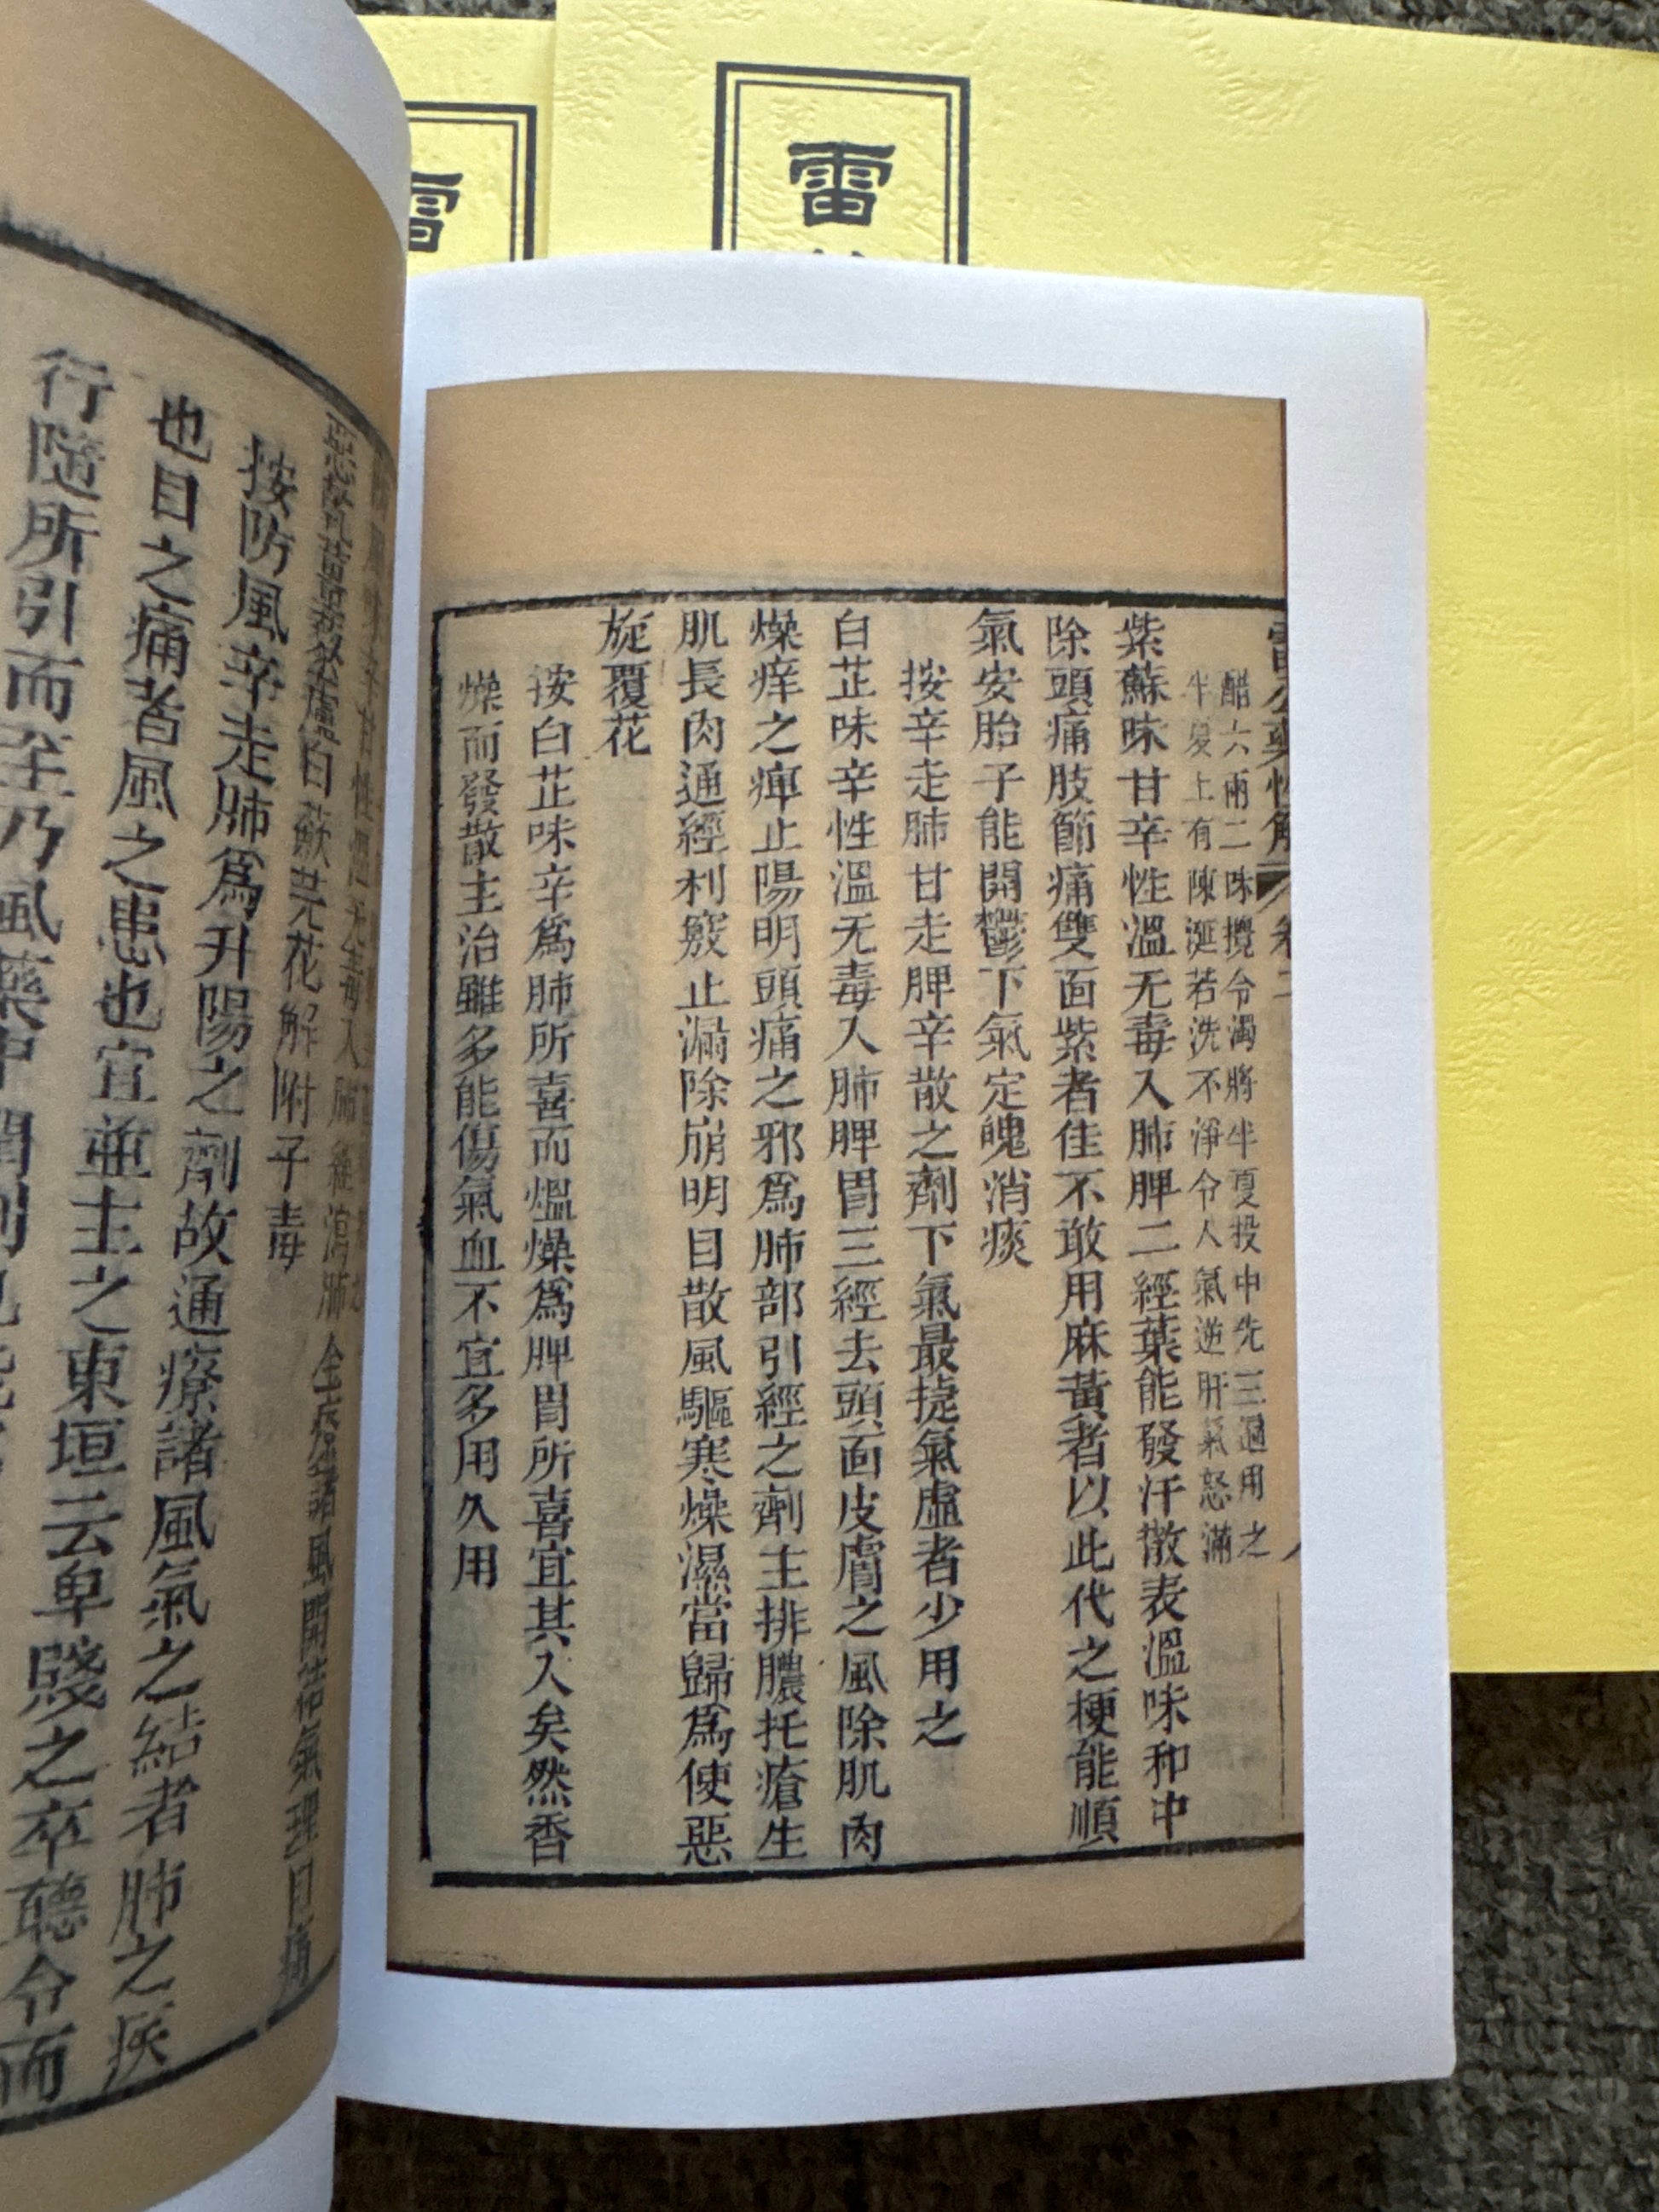 雷
雷
雷公藥性解 卷二
醋六兩二味攪令濁將半夏投中先三過用之
半夏上有陳涎若洗不淨令人氣逆肝氣怒滿
紫蘇味甘辛性溫无毒入肺脾二經葉能發汗散表溫味和中
除頭痛肢節痛雙面紫者佳不敢用麻黃者以此代之梗能順
氣安胎子能開鬱下氣定魄消痰
按辛走肺甘走脾辛散之劑下氣最捷氣虛者少用之
白芷味辛性溫无毒入肺脾胃三經去頭面皮膚之風除肌肉
燥痒之痺止陽明頭痛之邪爲肺部引經之劑主排膿托瘡生
肌長肉通經利竅止漏除崩明目散風驅寒燥濕當歸爲使惡
旋覆花
按白芷味辛爲肺所喜而熅燥爲脾胃所喜宜其入矣然香
燥而發散主治雖多能傷氣血不宜多用久用
白蘞芫花解附子毒
按防風辛走肺爲升陽之劑故通療諸風氣之結者肺之疾
也目之痛者風之患也宜並主之東垣云卑賤之卒聽令而
行隨所引而至乃風藥中潤劑也